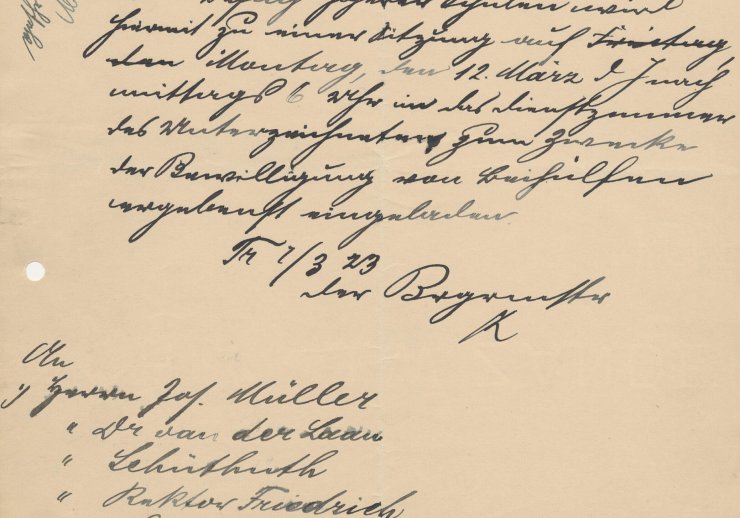 Besuch höherer Schulen wird
hiermit zu einer Sitzung auf Freitag,
den Montag, den 12. März d J nach
mittags 6 Uhr in das Dienstzimmer
des Unterzeichneten zum Zwecke
der Bewilligung von Beihülfen
ergebenst eingeladen
Tr 7/3 23
der Bürgermeister
K
An
1) Herrn Jos. Müller
" Dr van der Laan
"
" Rektor Friedrich